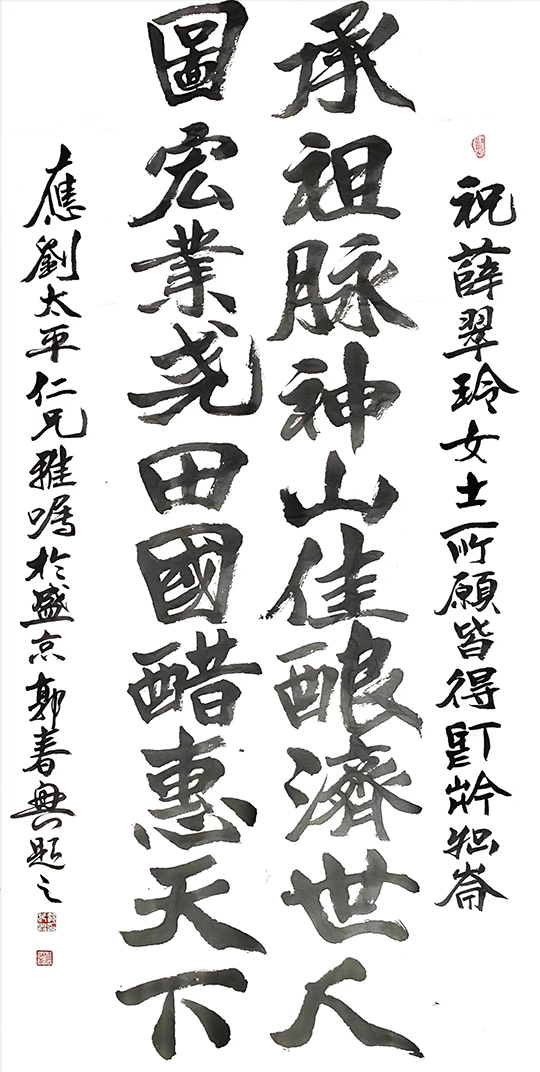 祝薛翠玲女士所願皆得
承祖脉神山佳酿濟世人
圖宏業尧田國醋惠天下
應劉太平仁兄雅嘱於盛京郭春興題之